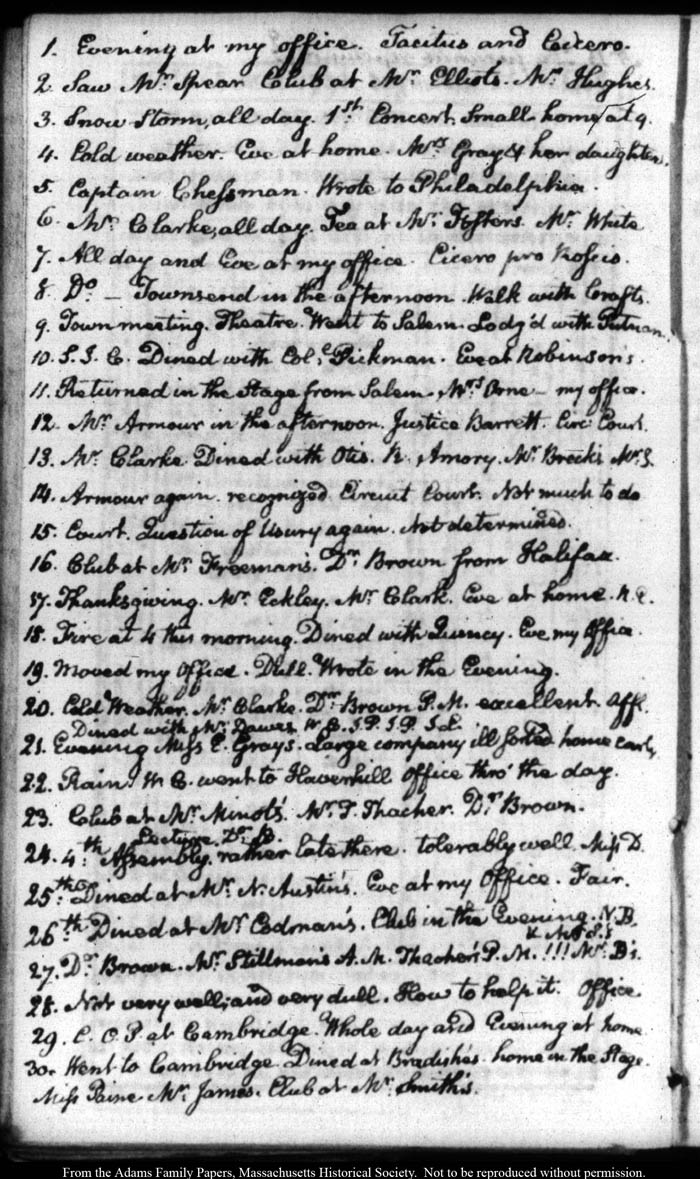 1. Evening at my office. Tacitus and Cicero.
2. Saw Mr. Spear Club at Mr. Elliot's. Mr. Hughes.
3. Snow Storm, all day. 1st. Concert. Small. home at 9.
4. Cold weather. Eve at home. Mrs. Gray & her daughter.
5. Captain Chessman. Wrote to Philadelphia.
6. Mr. Clarke, all day. Tea at Mr. Fosters. Mr. White
7. All day and Eve at my office. Cicero pro Roscio.
8. Do. — Townsend in the afternoon. Walk with Crafts.
9. Town meeting. Theatre. Went to Salem. Lodg'd with Putnam.
10. S. J. C. Dined with Col. Pickman. Eve at Robinson's.
11. Returned in the Stage from Salem. Mrs. Orne — my office.
12. Mr. Armour in the afternoon. Justice Barrett. Circ: Court.
13. Mr. Clarke. Dined with Otis. R. Amory. Mr. Breck's Mr. S.
14. Armour again. recognized. Circuit Court. Not much to do
15. Court. Question of Usury again. Not determined.
16. Club at Mr. Freeman's. Dr. Brown from Halifax.
17. Thanksgiving. Mr. Eckley. Mr. Clark. Eve at home. N. E.
18. Fire at 4 this morning. Dined with Quincy. Eve my Office.
19. Moved my Office. Dull. Wrote in the Evening.
20. Cold Weather. Mr. Clarke. Dr. Brown P. M. excellent. Aff.
Dined with Mr. Dawes W. C. J. P. J. P. J. L.
21. Evening Miss E. Grays. Large company ill sorted home early
22. Rain. W. C. went to Haverhill Office thro' the day.
23. Club at Mr. Minot's. Mr. T. Thacher. Dr. Brown.
Lecture. Dr. B.
24. 4th. Assembly. rather late there. tolerably well. Miss D.
25th. Dined at Mr. N. Austin's. Eve at my Office. Fair.
26th. Dined at Mr. Codman's. Club in the Evening. N.B.
27. Dr. Brown. Mr. Stillman's A. M. Thacher's P. M. !!! Mr. B's.
28. Not very well; and very dull. How to help it. Office
29. C. O. P. at Cambridge. Whole day and Evening at home
30. Went to Cambridge. Dined at Bradish's. home in the Stage.
Miss Paine Mr. James. Club at Mr. Smith's.
From the Adams Family Papers, Massachusetts Historical Society. Not to be reproduced without permission.